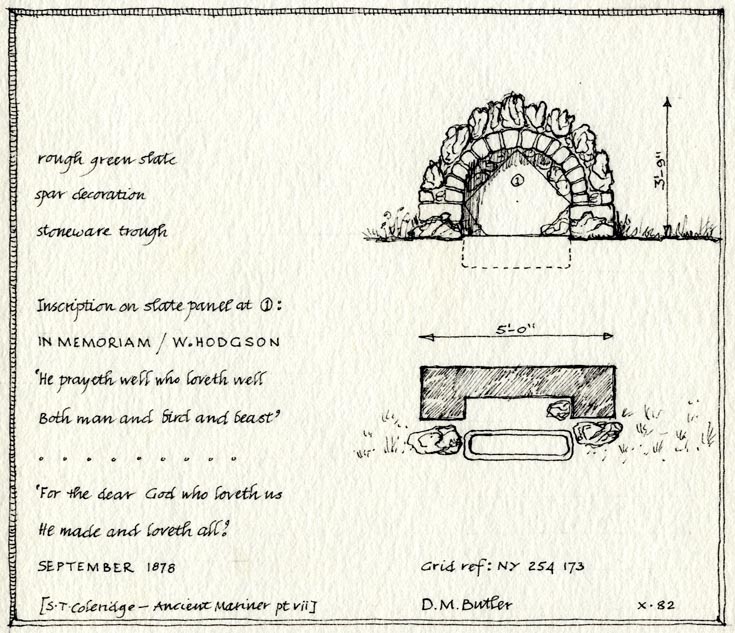 rough green slate
spar decoration
stoneware trough
Inscription on slate panel at ①:
IN MEMORIAM / W. HODGSON
'He prayeth well who loveth well
Both man and bird and beast'
'For the dear God who loveth us
He made and loveth all.'
SEPTEMBER 1878
[S.T. Coleridge – Ancient Mariner pt vii]
①
3'-9"
5'-0"
Grid ref: NY 254 173
D.M. Butler
X·82